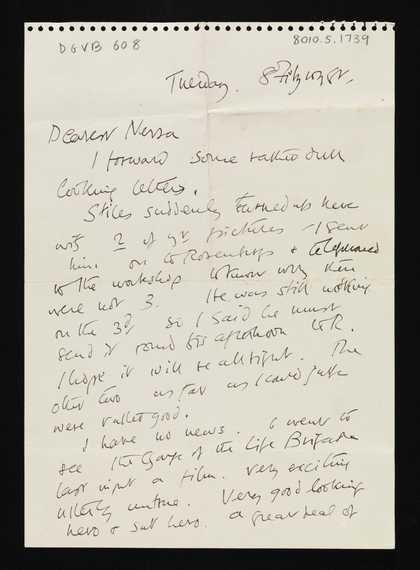 DGVB 608
8010.5.1739
Tuesday. 8 Fitzroy St.
Dearest Nessa
I forward some rather dull
looking letters.
Stiles suddenly turned up here
with 2 of yr pictures – I sent
him on to Rosenbergs & telephoned
to the workshop to know why there
were not 3. He was still working
on the 3rd so I said he must
send it round this afternoon to R.
I hope it will be all right. The
other two as far as I could judge
were rather good.
I have no news. I went to
see the Charge of the Life Brigade
last night a film. Very exciting
utterly untrue. Very good looking
hero & sub hero. a great deal of